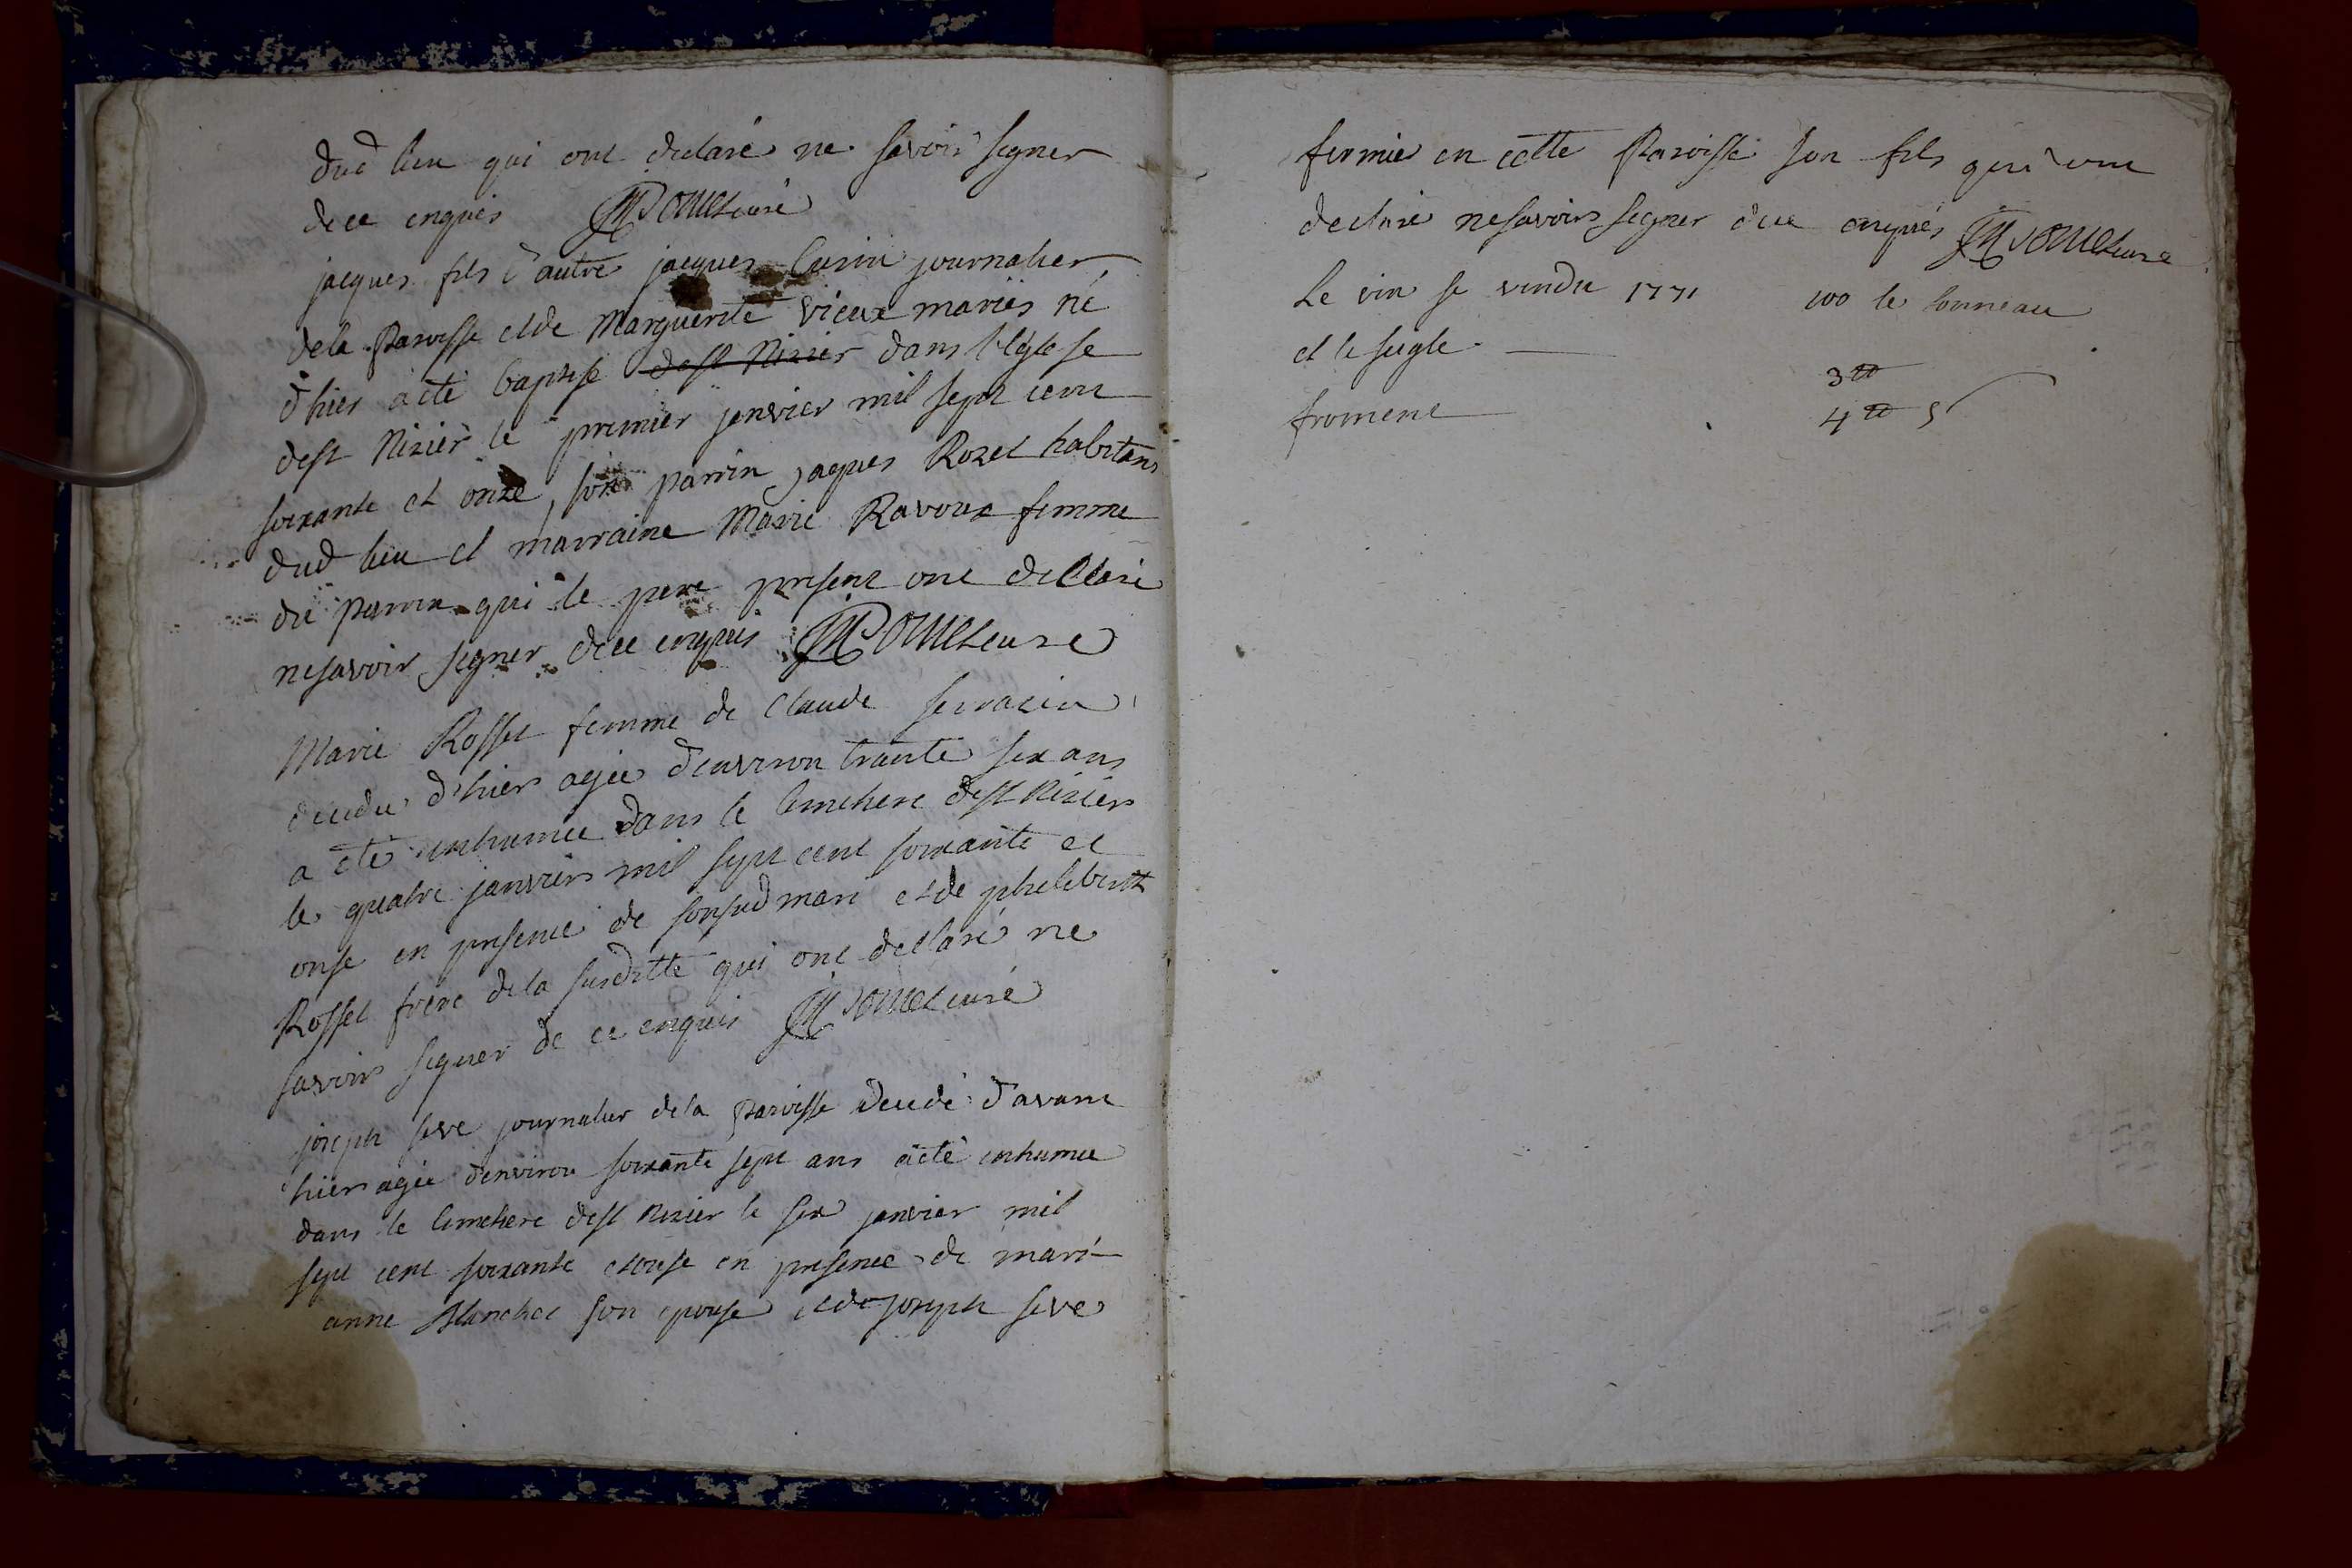 dud lieu qui ont declaré ne savoir signer
de ce enquis curé
jacques fils d'autre jacques Cusin journalier
dela Paroisse et de Marguerite vieux mariés né
d'hier a eté baptisé dest Nisier dans l'eglise
dest Nisier le premier janvier mil sept cent
soixante et onze, son parrin jaques Rozet habitans
dud lieu et marraine Marie Ravoux femme
du parrin qui le pere present ont declaré
ne savoir signer de ce enquis curé
Marie Rosset femme de Claude serracin
decedee d'hier agée d'environ trante six ans
a eté inhumee dans le Cimetiere dest Nisier
le quatre janvier mil sept cent soixante et
onse en presence de sonsud mari et de philibert
Rosset frere dela susditte qui ont declaré ne
savoir signer de ce enquis curé
joseph seve journalier dela paroisse decedé d'avant
hier agée d'environ soixante sept ans a eté inhumee
dans le Cimetiere dest Nisier le six janvier mil
sept cent soixante et onse en presence de mari
anne Blanchet son epouse et de joseph seve
fermier en cette Paroisse son fils qui ont
declaré ne savoir signer de ce enquis cure
Le vin se vendu 1771 100 le tonneau
et le seigle 3tt
froment 4tt 5s